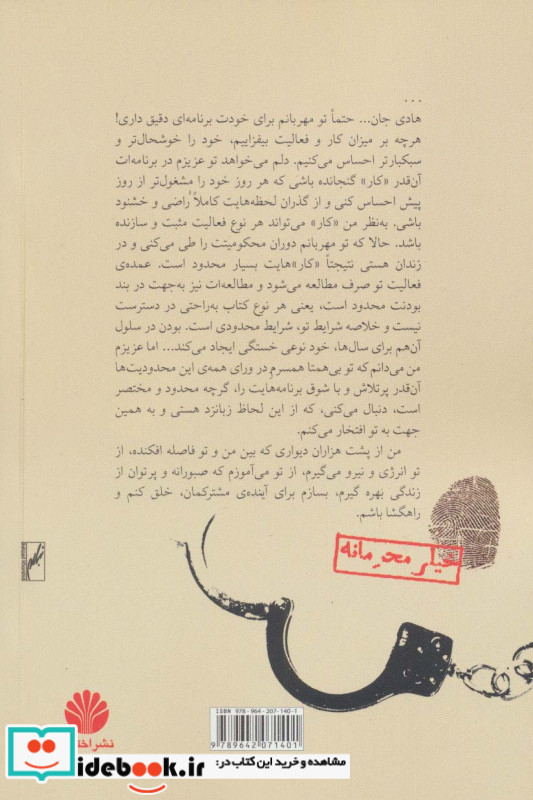 ...
هادی جان... حتماً تو مهربانم برای خودت برنامه‌ای دقیق داری!
هرچه بر میزان کار و فعالیت بیفزاییم، خود را خوشحال‌تر و
سبکبارتر احساس می‌کنیم. دلم می‌خواهد تو عزیزم در برنامه‌ات
آن‌قدر «کار» گنجانده باشی که هر روز خود را مشغول‌تر از روز
پیش احساس کنی و از گذران لحظه‌هایت کاملاً راضی و خشنود
باشی. به‌نظر من «کار» می‌تواند هر نوع فعالیت مثبت و سازنده
باشد. حالا که تو مهربانم دوران محکومیتت را طی می‌کنی و در
زندان هستی نتیجتاً «کار»هایت بسیار محدود است. عمده‌ی
فعالیت تو صرف مطالعه می‌شود و مطالعه‌ات نیز به‌جهت در بند
بودنت محدود است، یعنی هر نوع کتاب به‌راحتی در دسترست
نیست و خلاصه شرایط تو، شرایط محدودی است. بودن در سلول
آن‌هم برای سال‌ها، خود نوعی خستگی ایجاد می‌کند... اما عزیزم
من می‌دانم که تو بی‌همتا همسرم در ورای همه‌ی این محدودیت‌ها
آن‌قدر پرتلاش و با شوق برنامه‌هایت را، گرچه محدود و مختصر
است، دنبال می‌کنی، که از این لحاظ زبانزد هستی و به همین
جهت به تو افتخار می‌کنم.
من از پشت هزاران دیواری که بین من و تو فاصله افکنده، از
تو انرژی و نیرو می‌گیرم، از تو می‌آموزم که صبورانه و پرتوان از
زندگی بهره گیرم، بسازم برای آینده‌ی مشترکمان، خلق کنم و
راهگشا باشم.
خیلی محرمانه
ISBN 978-964-207-140-1
9 789642 071401
نشر
idebook.ir
مشاهده و خرید این کتاب در: